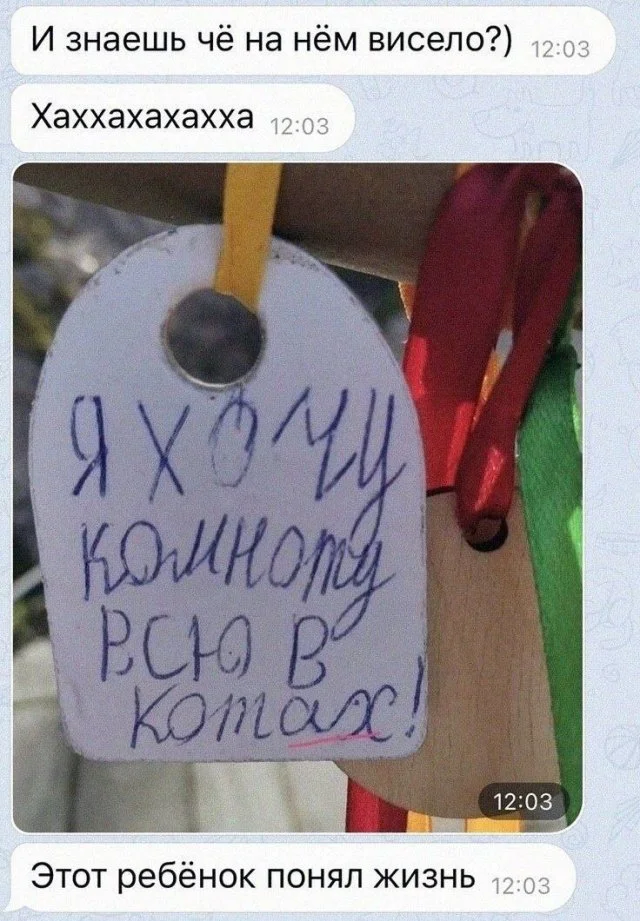 И знаешь чё на нём висело?) 12:03
Хаххахахахха 12:03
Я ХОЧУ
комноту
ВСЮ В
котах!
12:03
Этот ребёнок понял жизнь 12:03